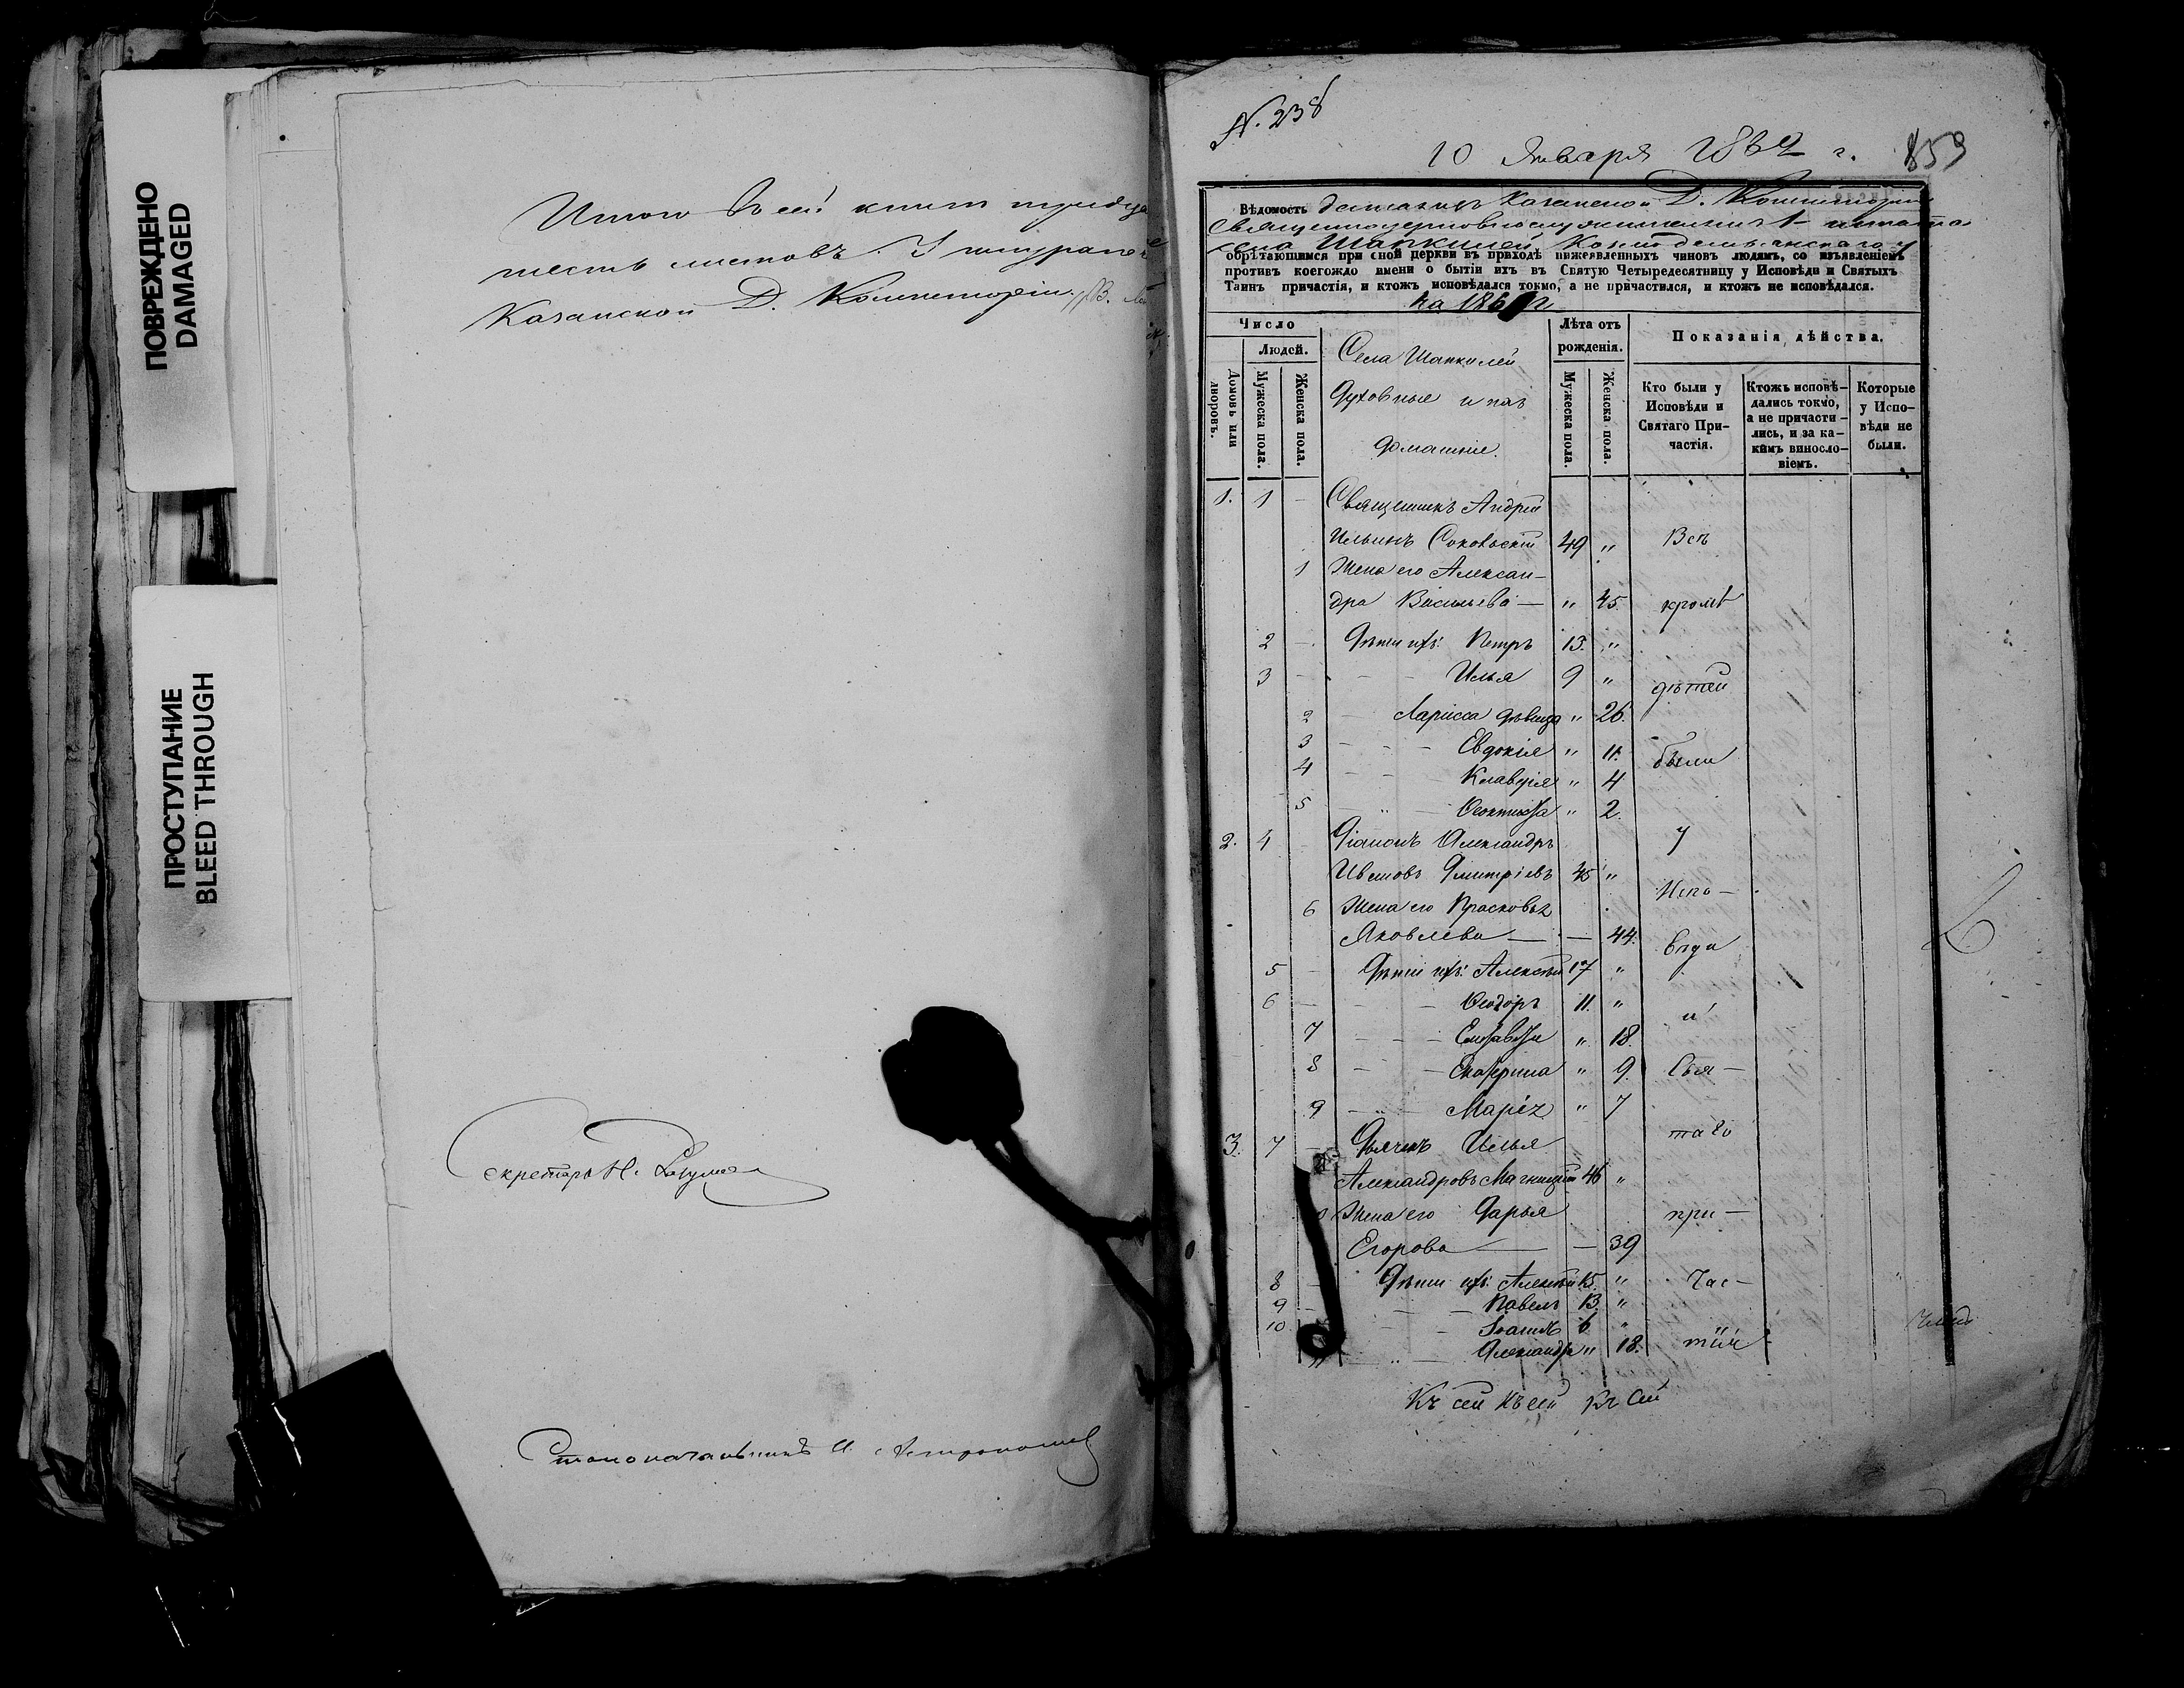 ПОВРЕЖДЕНО
DAMAGED
ПРОСТУПАНИЕ
BLEED THROUGH
Итого въ сей книгѣ
шесть листовъ.
Казанской Д. Консисторіи
Секретарь Н.
Столоначальникъ И.
N. 238
10 Января 1862 г. 859
Вѣдомость данная изъ Казанской Д. Консисторіи
священноцерковнослужителямъ
села Шапкилей Козмодемьянскаго у
обрѣтающимся при сной церкви въ приходѣ нижеявленныхъ чиновъ людямъ, со изъявленіемъ
противъ коегождо имени о бытіи ихъ въ Святую Четыредесятницу у Исповѣди и Святыхъ
Таинъ причастія, и ктожъ исповѣдался токмо, а не причастился, и ктожъ не исповѣдался.
на 1861 г.
Число
Людей.
Домовъ или дворовъ.
Мужеска пола.
Женска пола.
Села Шапкилей
Духовные и ихъ
домашніе.
Лѣта отъ рожденія.
Мужеска пола.
Женска пола.
Показанія дѣйства.
Кто были у Исповѣди и Святаго Причастія.
Ктожъ исповѣ-
дались токмо,
а не причасти-
лись, и за ка-
кимъ винослo-
віемъ.
Которые
у Испо-
вѣди не
были.
1. 1 — Священникъ Андрей
Ильинъ Соковьскій 49 " Всѣ
1 Жена его Алексан-
дра Васильева — " 45. кромѣ
2 — Дѣти ихъ: Петръ 13. "
3 — — — Илья 9 " дѣтей
2 — Ларисса дѣвица " 26.
3 — — — Евдокія " 11. были
4 — — — Клавдія " 4
5 — " — Ѳеоктиста " 2.
2. 4 — Діаконъ Александръ у
Ивановъ Димитріевъ 45 " Испо-
6 Жена его Прасковья
Яковлева — — 44. вѣди
5 — Дѣти ихъ: Алексѣй 17 "
6 — — — Ѳеодоръ 11. " и
7 — — — Елизавета " 18.
8 — — Екатерина " 9. Свя-
9 — " — Марія " 7
3. 7 — Дьячекъ Илья таго
Александровъ Магницкій 46 "
Жена его Дарья при-
Егорова — — 39
8 — Дѣти ихъ: Алексѣй 15. " час-
9 — — — Павелъ 13. "
10 — — Іоаннъ 6 "
" — Александра " 18. тія
Къ сей къ сей къ сей